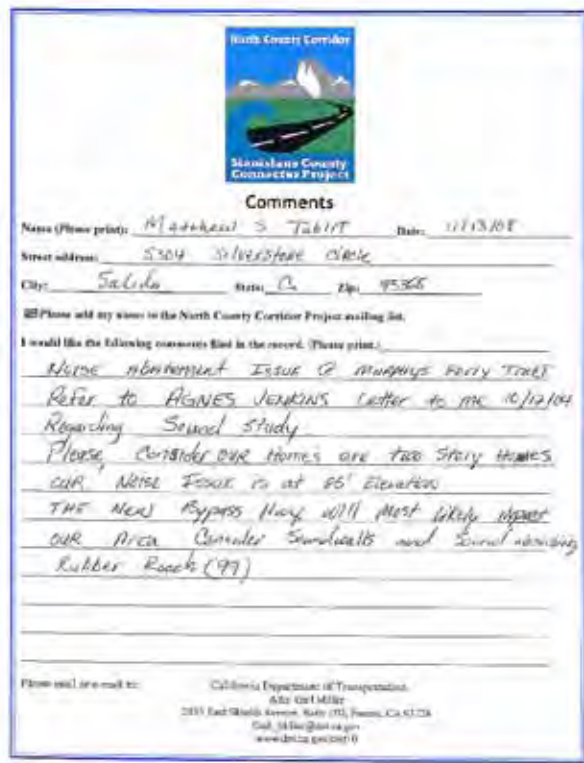 North County Corridor
Stanislaus County
Connector Project
Comments
Name (Please print): Matthew S Date: 11/13/08
Street address: 5304 Silverstone Circle
City: Salida State: Ca Zip: 95368
Please add my name to the North County Corridor Project mailing list.
I would like the following comments filed in the record. (Please print.)
Noise Abatement Issue @ Murphys Ferry Tract
Refer to AGNES JENKINS Letter to me
Regarding Sound Study
Please, Consider our Homes are two Story Homes
our Noise Issue is at Elevation
THE New Bypass Hwy will Most likely impact
our Area Consider Soundwalls and Sound absorbing
Rubber (99)
Please mail or e-mail to: California Department of Transportation
Miller
East Shields Avenue, Fresno, CA